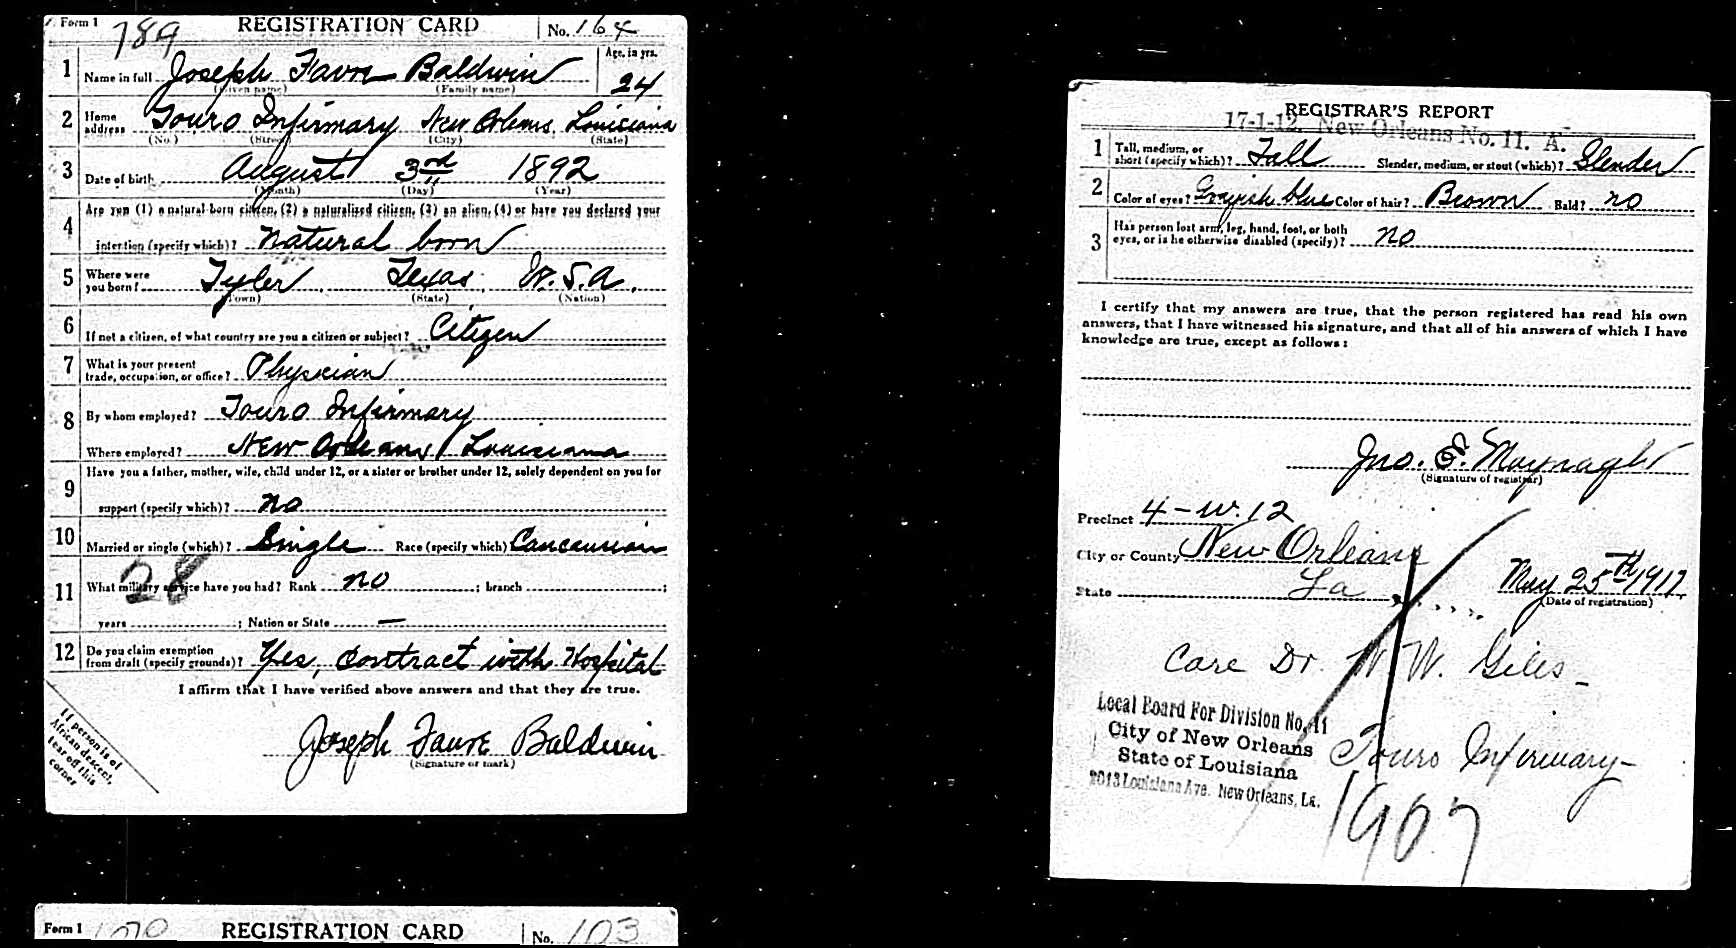 Form 1 789 REGISTRATION CARD No. 164
1 Name in full Joseph Favre Baldwin Age, in yrs. 24
(Given name) (Family name)
2 Home address Touro Infirmary New Orleans, Louisiana
(No.) (Street) (City) (State)
3 Date of birth August 3rd 1892
(Month) (Day) (Year)
4 Are you (1) a natural-born citizen, (2) a naturalized citizen, (3) an alien, (4) or have you declared your
intention (specify which)? natural born
5 Where were you born? Tyler, Texas, U.S.A.
(Town) (State) (Nation)
6 If not a citizen, of what country are you a citizen or subject? Citizen
7 What is your present trade, occupation, or office? Physician
8 By whom employed? Touro Infirmary
Where employed? New Orleans, Louisiana
9 Have you a father, mother, wife, child under 12, or a sister or brother under 12, solely dependent on you for
support (specify which)? no
10 Married or single (which)? Single Race (specify which) Caucausian
11 What military service have you had? Rank no ; branch ;
28
years ; Nation or State —
12 Do you claim exemption from draft (specify grounds)? Yes, contract with Hospital
I affirm that I have verified above answers and that they are true.
Joseph Favre Baldwin
(Signature or mark)
If person is of
African descent,
tear off this
corner
Form 1 REGISTRATION CARD No. 103
REGISTRAR'S REPORT
17-1-12. New Orleans No. 11. A.
1 Tall, medium, or short (specify which)? Tall Slender, medium, or stout (which)? Slender
2 Color of eyes? Grayish blue Color of hair? Brown Bald? no
3 Has person lost arm, leg, hand, foot, or both
eyes, or is he otherwise disabled (specify)? no
I certify that my answers are true, that the person registered has read his own
answers, that I have witnessed his signature, and that all of his answers of which I have
knowledge are true, except as follows:
Jno.
(Signature of registrar)
Precinct 4 - W. 12
City or County New Orleans
State La May 25th 1917
(Date of registration)
Care Dr. W. Giles
Local Board For Division No. 11
City of New Orleans
State of Louisiana
2013 Louisiana Ave. New Orleans, La.
Touro Infirmary
1907